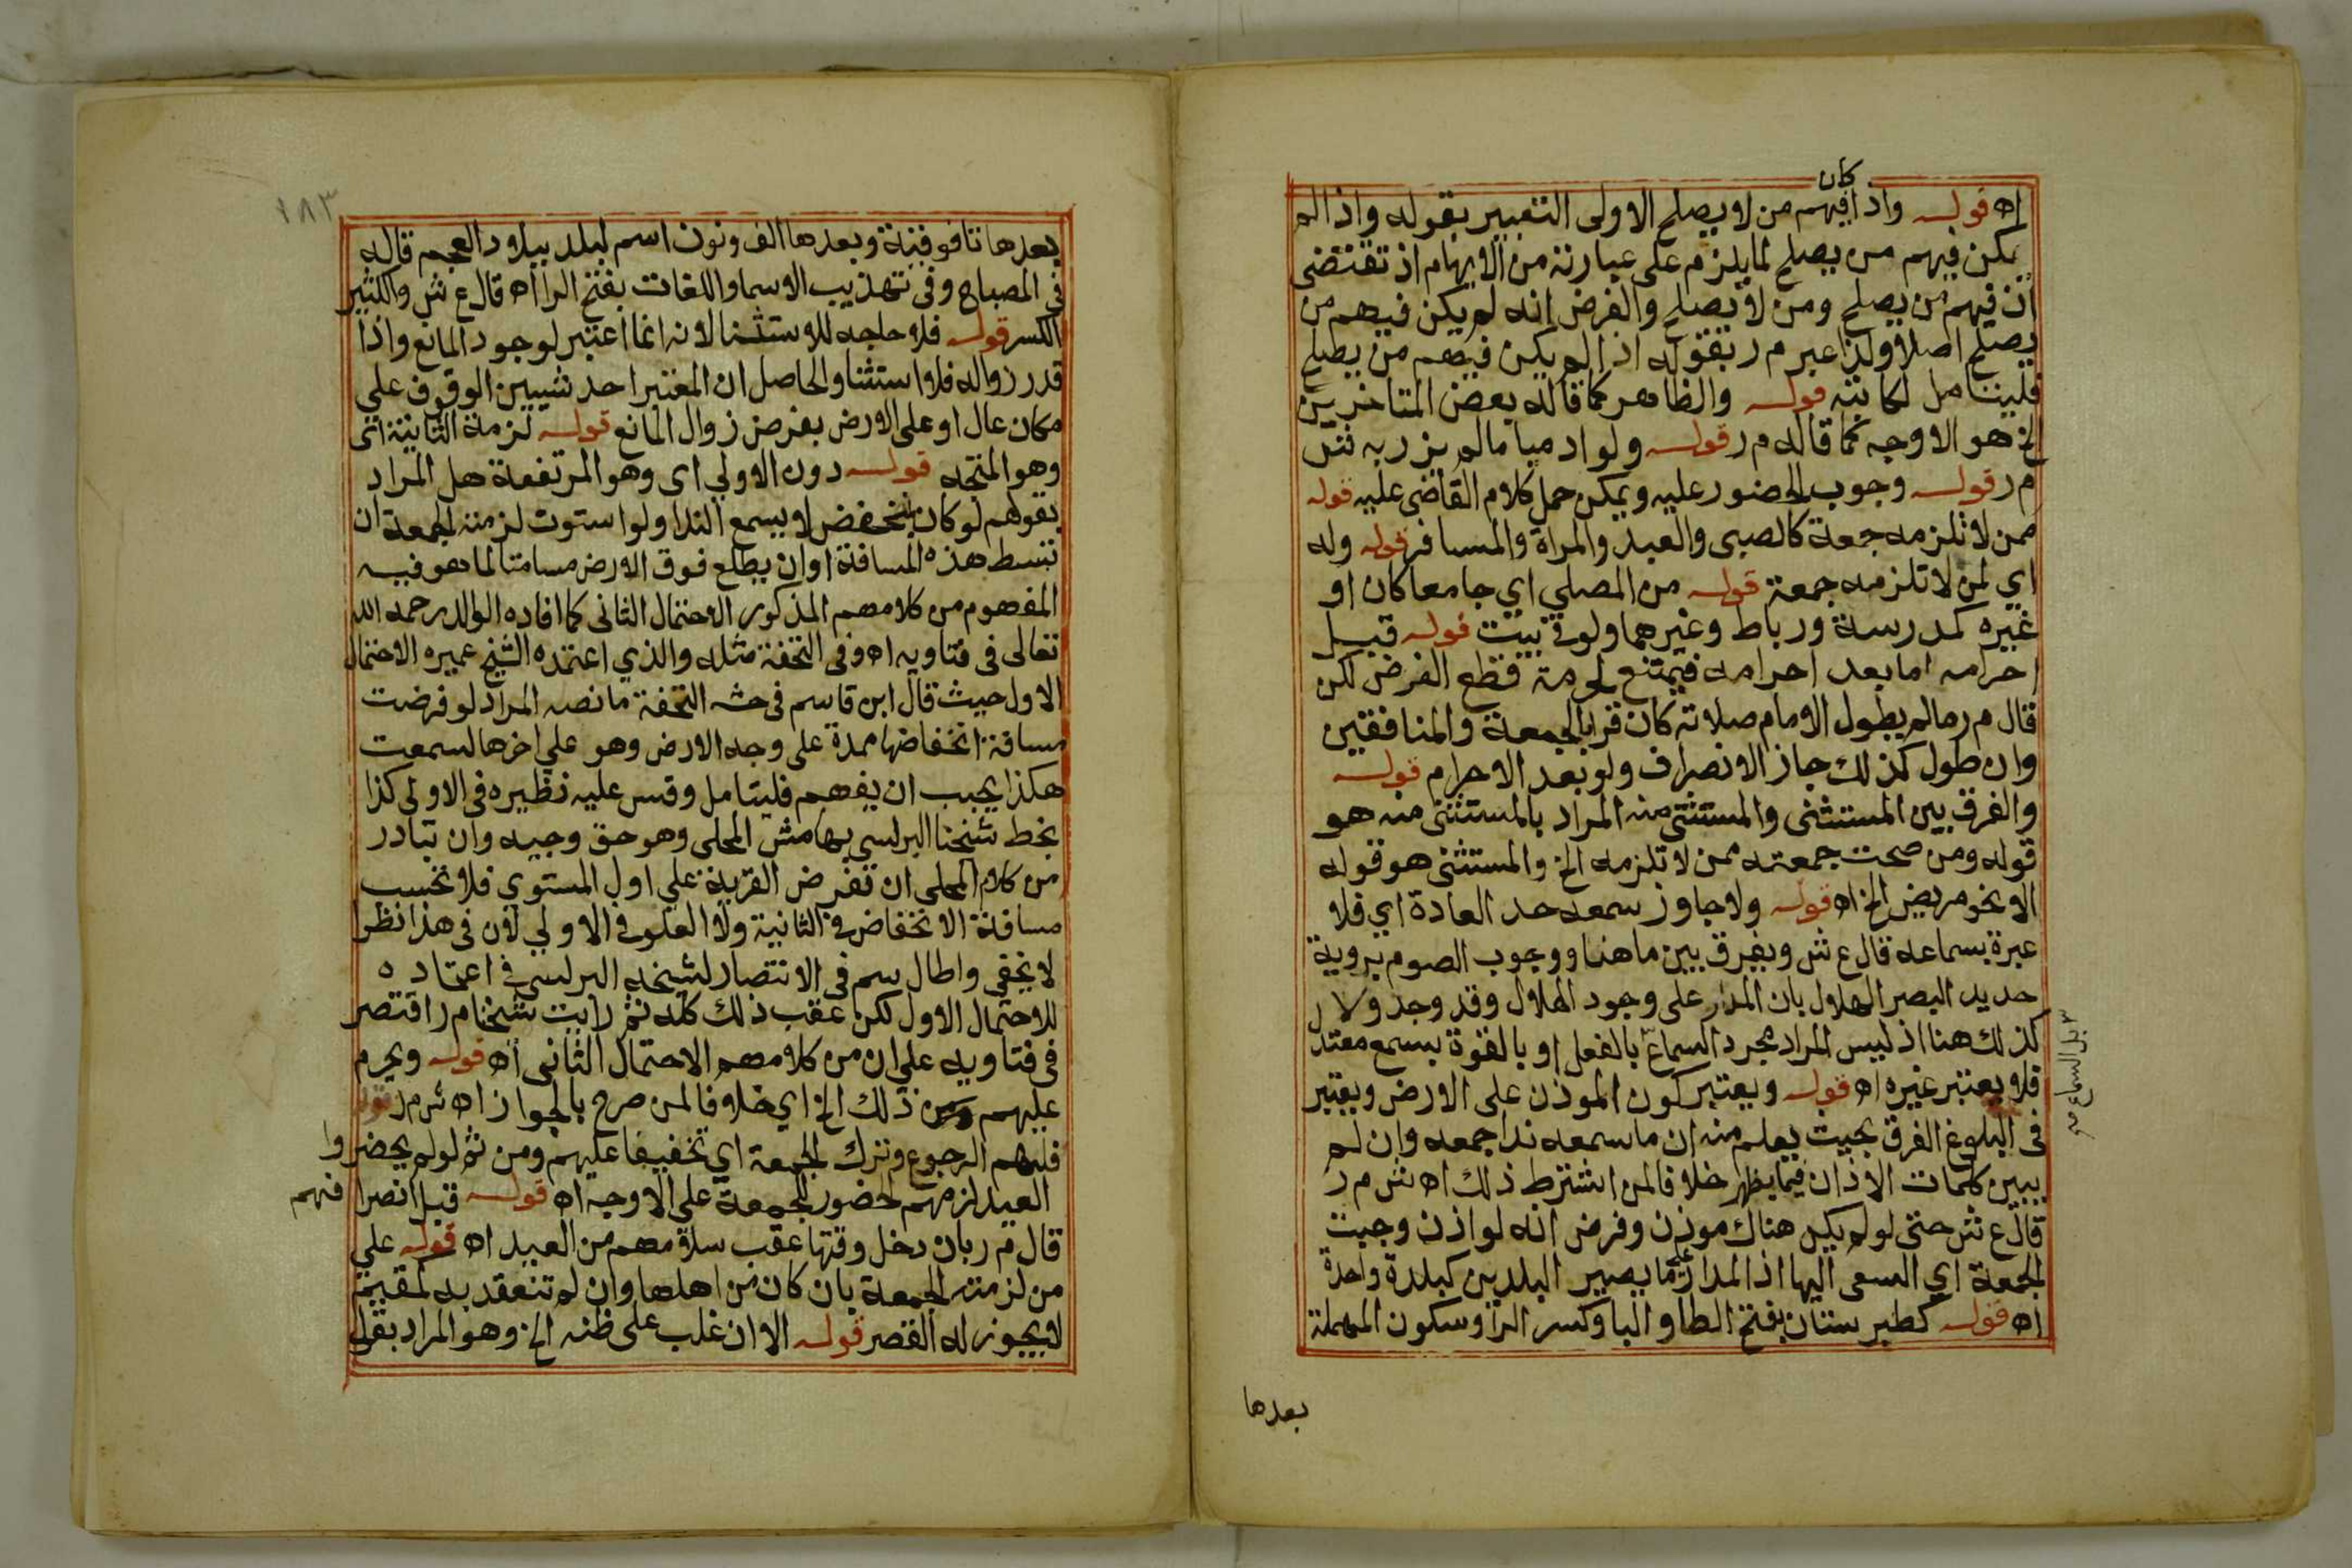 كان
اه قوله واذا فيهم من لا يصلح الاولى التعبير بقوله واذا لم
يكن فيهم من يصلح لما يلزم على عبارته من الايهام اذ تقتضى
ان فيهم من يصلح ومن لا يصلح والفرض انه لم يكن فيهم من
يصلح اصلا ولذا عبر م ر بقوله اذا لم يكن فيهم من يصلح
فليتامل لكاتبه قوله والظاهر كما قاله بعض المتاخرين
الخ هو الاوجه كما قاله م ر قوله ولو ادميا ما لم يزر به ش
م ر قوله وجوب الحضور عليه ويمكن حمل كلام القاضى عليه قوله
ممن لا تلزمه جمعة كالصبى والعبد والمراة والمسافر قوله وله
اي لمن لا تلزمه جمعة قوله من المصلي اي جامعا كان او
غيره كمدرسة ورباط وغيرهما ولو فى بيت قوله قبل
احرامه اما بعد احرامه فيمتنع لحرمة قطع الفرض لكن
قال م ر ما لم يطول الامام صلاته كان قرا بالجمعة والمنافقين
وان طول كذلك جاز الانصراف ولو بعد الاحرام قوله
والفرق بين المستثنى والمستثنى منه المراد بالمستثنى منه هو
قوله ومن صحت جمعته ممن لا تلزمه الخ والمستثنى هو قوله
الا نحو مريض الخ اه قوله ولا جاوز سمعه حد العادة اي فلا
عبرة بسماعه قال ع ش ويفرق بين ما هنا ووجوب الصوم بروية
حديد البصر الهلال بان المدار على وجود الهلال وقد وجد ولا
كذلك هنا اذ ليس المراد مجرد السماع بالفعل او بالقوة بسمع معتدل
بل السماع صح
فلا يعتبر غيره اه قوله ويعتبر كون الموذن على الارض ويعتبر
فى البلوغ الفرق بحيث يعلم منه ان ما سمعه ندا جمعه وان لم
يبين كلمات الاذان فيما يظهر خلافا لمن اشترط ذلك اه ش م ر
قال ع ش حتى لو لم يكن هناك موذن وفرض انه لو اذن وجبت
الجمعة اي السعى اليها اذ المدار على ما يصير البلدين كبلدة واحدة
اه قوله كطبرستان بفتح الطا والبا وكسر الرا وسكون المهملة
بعدها
١٨٣
بعدها تا فوقية وبعدها الف ونون اسم لبلد ببلاد العجم قاله
فى المصباح وفى تهذيب الاسما واللغات بفتح الرا اه قال ع ش والكثير
الكسر قوله فلا حاجه للاستثنا لانه انما اعتبر لوجود المانع واذا
قدر زواله فلا استثنا والحاصل ان المعتبر احد شيين الوقوف علي
مكان عال او على الارض بفرض زوال المانع قوله لزمة الثانية اى
وهو المتجه قوله دون الاولي اى وهو المرتفعة هل المراد
بقولهم لو كان بمنخفض لا يسمع الندا ولو استوت لزمته الجمعة ان
تبسط هذه المسافة او ان يطلع فوق الارض مسامتا لما هو فيه
المفهوم من كلامهم المذكور الاحتمال الثانى كما افاده الوالد رحمه الله
تعالى فى فتاويه اه وفى التحفة مثله والذي اعتمده الشيخ عميره الاحتمال
الاول حيث قال ابن قاسم فى حشـ التحفة ما نصه المراد لو فرضت
مسافة انخفاضها ممدة على وجه الارض وهو علي اخرها لسمعت
هكذا يجب ان يفهم فليتامل وقس عليه نظيره فى الاولى كذا
بخط شيخنا البرلسى بهامش المحلى وهو حق وجيه وان تبادر
من كلام المحلى ان تفرض القرية علي اول المستوي فلا تحسب
مسافة الانخفاض فى الثانية ولا العلو فى الاولي لان فى هذا نظرا
لا يخفى واطال سم فى الانتصار لشيخه البرلسى فى اعتماده
للاحتمال الاول لكن عقب ذلك كله ثم رايت شيخنا م ر اقتصر
فى فتاويه علي ان من كلامهم الاحتمال الثانى اه قوله ويحرم
عليهم ذلك الخ اي خلافا لمن صرح بالجواز اه ش م ر قوله
فلهم الرجوع وترك الجمعة اي تخفيفا عليهم ومن ثم لو لم يحضروا
العيد لزمهم الحضور للجمعة على الاوجه اه قوله قبل انصرافهم
قال م ر بان دخل وقتها عقب سلامهم من العيد اه قوله علي
من لزمته الجمعة بان كان من اهلها وان لم تنعقد به كمقيم
لا يجوز له القصر قوله الا ان غلب على ظنه الخ وهو المراد بقول